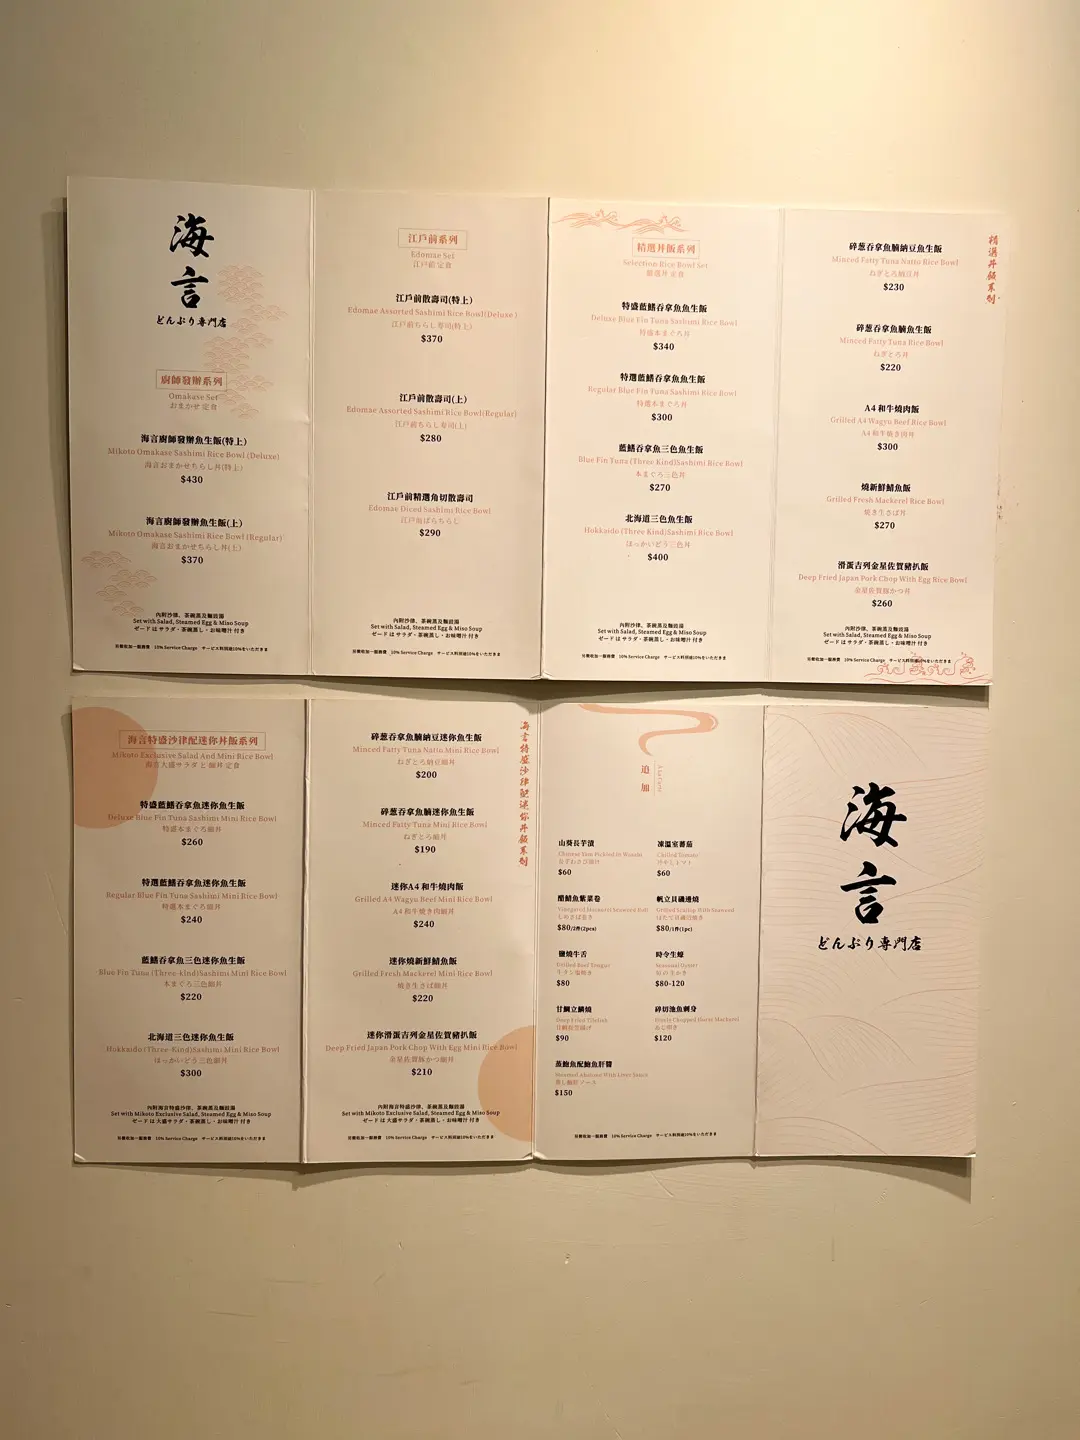 海言
どんぶり専門店
廚師發辦系列
Omakase Set
おまかせ定食
海言廚師發辦魚生飯(特上)
Mikoto Omakase Sashimi Rice Bowl (Deluxe)
海言おまかせちらし丼(特上)
$430
海言廚師發辦魚生飯(上)
Mikoto Omakase Sashimi Rice Bowl (Regular)
海言おまかせちらし丼(上)
$370
內附沙律、茶碗蒸及麵豉湯
Set with Salad, Steamed Egg & Miso Soup
ゼードはサラダ・茶碗蒸し・お味噌汁 付き
另需收加一服務費 10% Service Charge サービス料別途10%をいただきます
江戶前系列
Edomae Set
江戸前 定食
江戶前散壽司(特上)
Edomae Assorted Sashimi Rice Bowl(Deluxe)
江戸前ちらし寿司(特上)
$370
江戶前散壽司(上)
Edomae Assorted Sashimi Rice Bowl(Regular)
江戸前ちらし寿司(上)
$280
江戶前精選角切散壽司
Edomae Diced Sashimi Rice Bowl
江戸前ばらちらし
$290
另需收加一服務費 10% Service Charge サービス料別途10%をいただきます
精選丼飯系列
Selection Rice Bowl Set
厳選丼 定食
特盛藍鰭吞拿魚魚生飯
Deluxe Blue Fin Tuna Sashimi Rice Bowl
特盛本まぐろ丼
$340
特選藍鰭吞拿魚魚生飯
Regular Blue Fin Tuna Sashimi Rice Bowl
特選本まぐろ丼
$300
藍鰭吞拿魚三色魚生飯
Blue Fin Tuna (Three Kind)Sashimi Rice Bowl
本まぐろ三色丼
$270
北海道三色魚生飯
Hokkaido (Three Kind)Sashimi Rice Bowl
ほっかいどう三色丼
$400
內附沙律、茶碗蒸及麵豉湯
Set with Salad, Steamed Egg & Miso Soup
ゼードはサラダ・茶碗蒸し・お味噌汁 付き
精選丼飯系列
碎葱吞拿魚腩納豆魚生飯
Minced Fatty Tuna Natto Rice Bowl
ねぎとろ納豆丼
$230
碎葱吞拿魚腩魚生飯
Minced Fatty Tuna Rice Bowl
ねぎとろ丼
$220
A4 和牛燒肉飯
Grilled A4 Wagyu Beef Rice Bowl
A4 和牛焼き肉丼
$300
燒新鮮鯖魚飯
Grilled Fresh Mackerel Rice Bowl
焼き生さば丼
$270
滑蛋吉列金星佐賀豬扒飯
Deep Fried Japan Pork Chop With Egg Rice Bowl
金星佐賀豚かつ丼
$260
內附沙律、茶碗蒸及麵豉湯
Set with Salad, Steamed Egg & Miso Soup
ゼードはサラダ・茶碗蒸し・お味噌汁 付き
另需收加一服務費 10% Service Charge サービス料別途10%をいただきます
海言特盛沙律配迷你丼飯系列
Mikoto Exclusive Salad And Mini Rice Bowl
海言大盛サラダ と 細丼 定食
特盛藍鰭吞拿魚迷你魚生飯
Deluxe Blue Fin Tuna Sashimi Mini Rice Bowl
特盛本まぐろ細丼
$260
特選藍鰭吞拿魚迷你魚生飯
Regular Blue Fin Tuna Sashimi Mini Rice Bowl
特選本まぐろ細丼
$240
藍鰭吞拿魚三色迷你魚生飯
Blue Fin Tuna (Three-kind)Sashimi Mini Rice Bowl
本まぐろ三色細丼
$220
北海道三色迷你魚生飯
Hokkaido (Three-Kind)Sashimi Mini Rice Bowl
ほっかいどう三色細丼
$300
內附海言特盛沙律、茶碗蒸及麵豉湯
Set with Mikoto Exclusive Salad, Steamed Egg & Miso Soup
ゼードは 大盛サラダ・茶碗蒸し・お味噌汁 付き
另需收加一服務費 10% Service Charge サービス料別途10%をいただきます
海言特盛沙律配迷你丼飯系列
碎葱吞拿魚腩納豆迷你魚生飯
Minced Fatty Tuna Natto Mini Rice Bowl
ねぎとろ納豆細丼
$200
碎葱吞拿魚腩迷你魚生飯
Minced Fatty Tuna Mini Rice Bowl
ねぎとろ細丼
$190
迷你A4 和牛燒肉飯
Grilled A4 Wagyu Beef Mini Rice Bowl
A4 和牛焼き肉細丼
$240
迷你燒新鮮鯖魚飯
Grilled Fresh Mackerel Mini Rice Bowl
焼き生さば細丼
$220
迷你滑蛋吉列金星佐賀豬扒飯
Deep Fried Japan Pork Chop With Egg Mini Rice Bowl
金星佐賀豚かつ細丼
$210
內附海言特盛沙律、茶碗蒸及麵豉湯
Set with Mikoto Exclusive Salad, Steamed Egg & Miso Soup
ゼードは 大盛サラダ・茶碗蒸し・お味噌汁 付き
另需收加一服務費 10% Service Charge サービス料別途10%をいただきます
追加
A La Carte
山葵長芋漬
Chinese Yam Pickled in Wasabi
$60
凍溫室蕃茄
Chilled Tomato
冷やしトマト
$60
醋鯖魚紫菜卷
Vinegared Mackerel Seaweed Roll
しめさば巻き
$80/2件(2pcs)
帆立貝磯邊燒
Grilled Scallop With Seaweed
ほたて貝磯辺焼き
$80/1件(1pc)
鹽燒牛舌
Grilled Beef Tongue
牛タン塩焼き
$80
時令生蠔
Seasonal Oyster
旬の生かき
$80-120
甘鯛立鱗燒
Deep Fried Tilefish
$90
碎切池魚刺身
Finely Chopped Horse Mackerel
$120
蒸鮑魚配鮑魚肝醬
Steamed Abalone With Liver Sauce
蒸し鮑肝ソース
$150
另需收加一服務費 10% Service Charge サービス料別途10%をいただきます
海言
どんぶり専門店